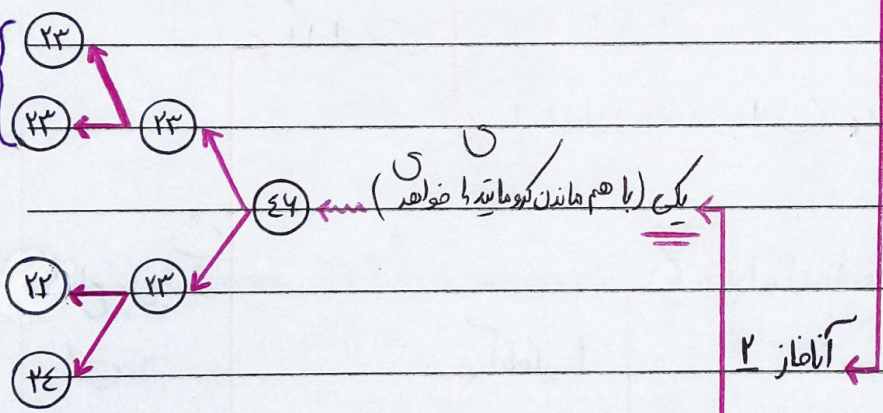 ۲۳
۲۳ ۲۳
یکی (با هم ماندن کروماتیدهای خواهری) ۴۶
۲۳ ۲۲
آنافاز ۲
۲۴